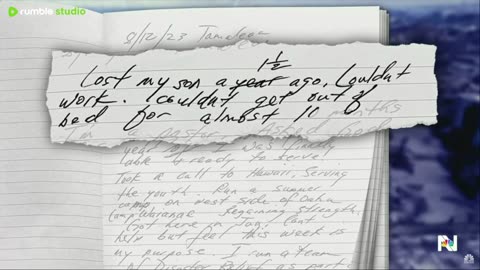 rumble studio
8/12/23
1½
Lost my son a year ago. Couldnt
work. Couldnt get out of
bed for almost
months
I was finally
able & ready to serve!
Took a call to Hawaii, serving
the youth. Ran a summer
camp on west side of Oahu
Regaining strength.
Got here in Jan. Cant
help but feel this week is
my purpose. I run a team
of Disaster Relief as part
N